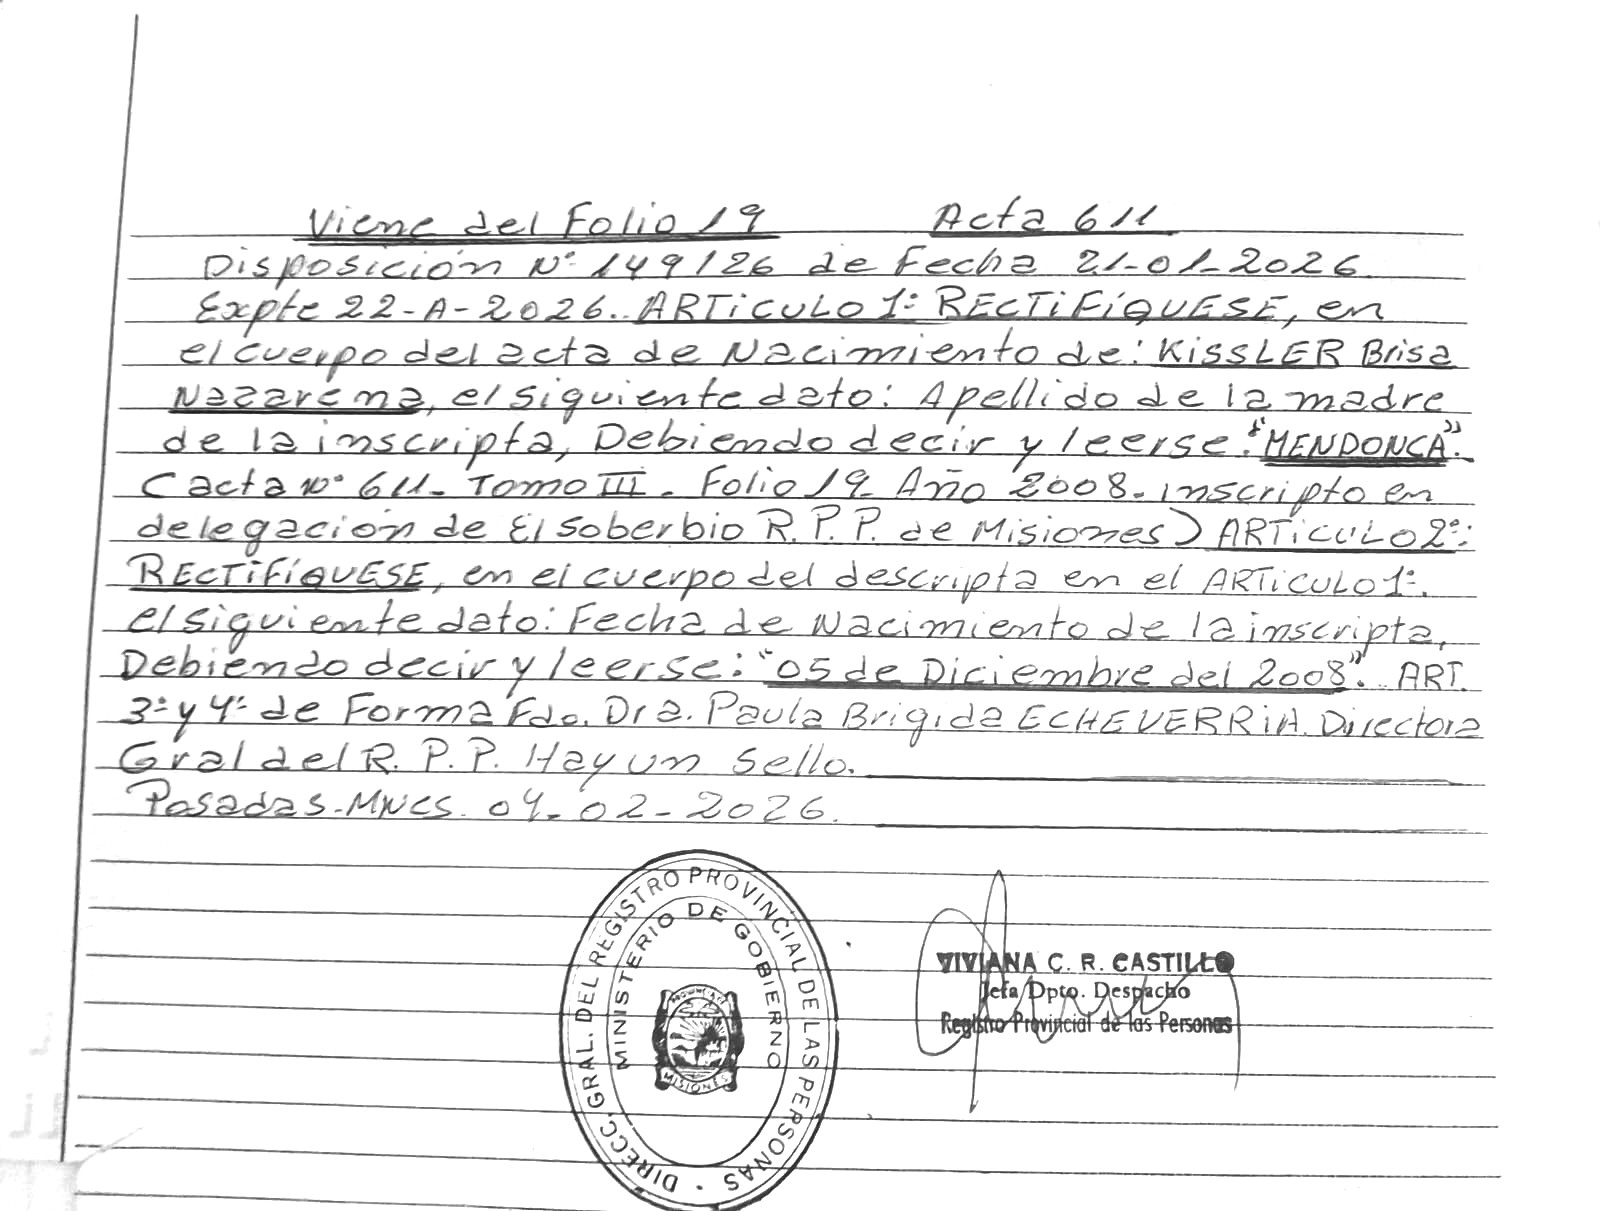 Viene del Folio 19 Acta 611
Disposición Nº 149/26 de Fecha 21-01-2026.
Expte 22-A-2026. ARTICULO 1º: RECTIFÍQUESE, en
el cuerpo del acta de Nacimiento de: KISSLER Brisa
Nazarena, el siguiente dato: Apellido de la madre
de la inscripta, Debiendo decir y leerse: "MENDONCA".
(acta nº 611- Tomo III. Folio 19- Año 2008. inscripto en
delegación de El Soberbio R.P.P. de Misiones) ARTICULO 2º:
RECTIFÍQUESE, en el cuerpo del descripta en el ARTICULO 1º.
el siguiente dato: Fecha de Nacimiento de la inscripta,
Debiendo decir y leerse: "05 de Diciembre del 2008". ART.
3º y 4º de Forma Fdo. Dra. Paula Brigida ECHEVERRIA. Directora
Gral del R.P.P. Hay un Sello.
Posadas-MNES. 04-02-2026.
DIRECC. GRAL. DEL REGISTRO PROVINCIAL DE LAS PERSONAS
MINISTERIO DE GOBIERNO
PROVINCIA DE
MISIONES
VIVIANA C. R. CASTILLO
Jefa Dpto. Despacho
Registro Provincial de las Personas